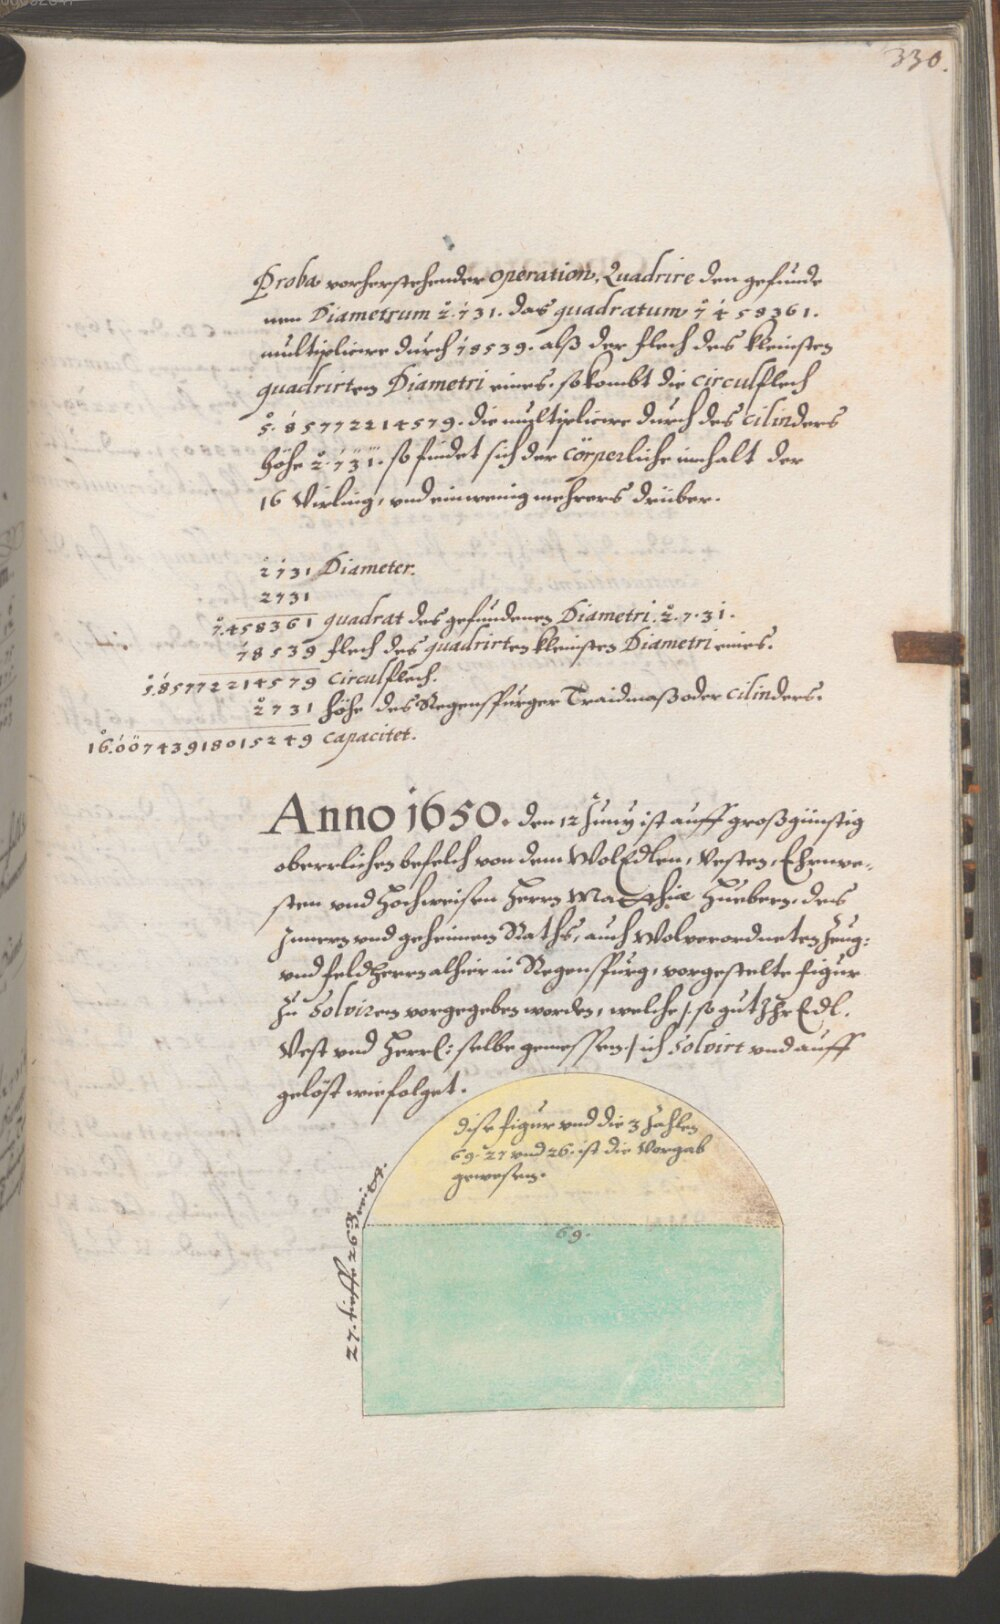 330.
Proba vorherstehender operation, Quadrire den gefunde
nen Diametrum 2.731. das quadratum 7458361.
multiplicire durch 78539. alß der flech des kleinsten
quadrirten Diametri eines. so kombt die circulflech
5.85772214579. die multiplicire durch des cilinders
höhe 2.731. so findet sich der cörperliche innhalt der
16 Virling, und ein wenig mehrers drüber.
2731 Diameter.
2731
7.458361 quadrat des gefundenen Diametri. 2.7.31.
78539 flech des quadrirten kleinsten Diametri eines.
5.85772214579 circulflech.
2731 höhe des Regenspurger Traidmaß oder cilinders.
16.00743918015249 capacitet.
Anno 1650. den 12 Juny ist auff großgünstig
oberrlichen befelch von dem WolEdlen, Vesten, Ehrnve-
sten und Hochweisen Herrn Matthiæ Huebern, des
Innern und geheimen Raths, auch Wolverordneten Zeug:
und feldherrn alhier in Regenspurg, vorgestelte figur
zu Solviren vorgegeben worden, welche /: so gut Ihr Edl.
Vest und Herrl: selbe gemessen :/ ich Solvirt und auff
gelöst wie folget.
dise figur und die 3 Zahlen
69. 27 und 26. ist die Vorgab
gewesen.
69.
27. tieffe 26 breite.